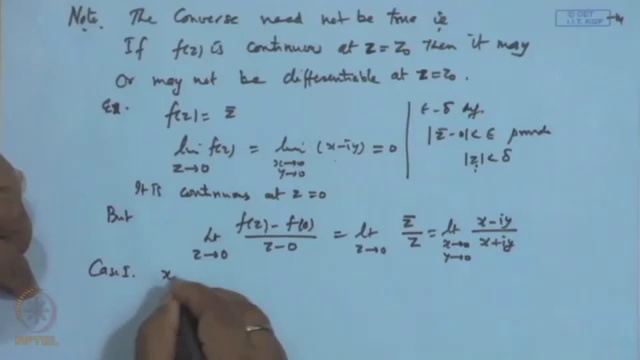 © CET
I.I.T. KGP
Note. The Converse need not be true ie
If f(z) is continuous at z=z₀ Then it may
Or may not be differentiable at z=z₀.
Ex. f(z) = z̄
ε-δ def.
lim z→0 f(z) = lim x→0 y→0 (x-iy) = 0
|z̄-0|<ε provide
|z|<δ
It is continuous at z=0
But lt z→0 f(z)-f(0) / z-0 = lt z→0 z̄/z = lt x→0 y→0 x-iy / x+iy
Case I. x
NPTEL